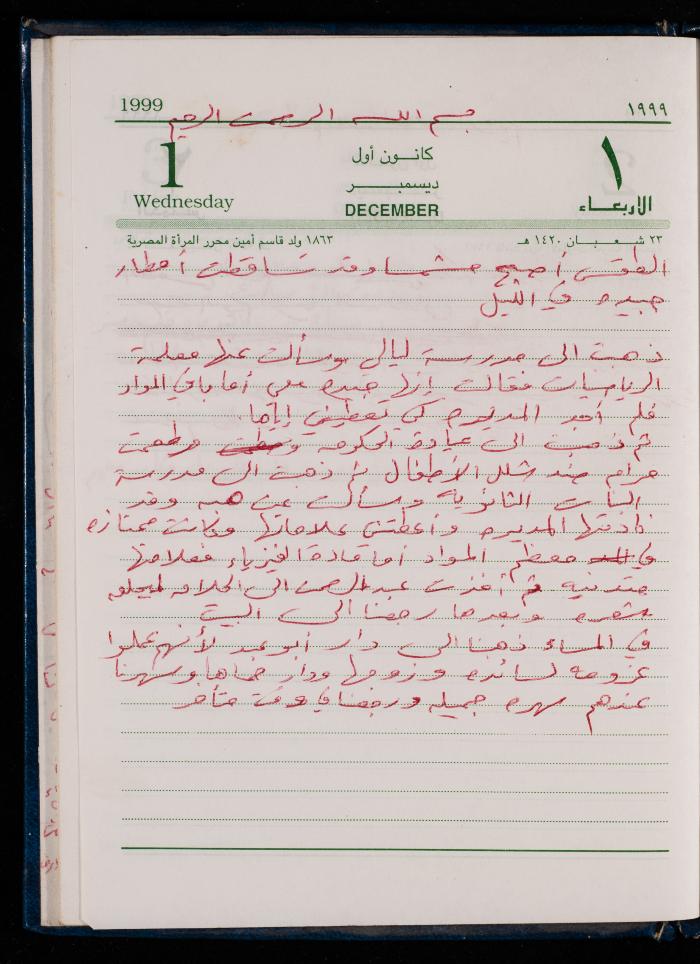 1999 بسم الله الرحمن الرحيم ١٩٩٩
1 كانون أول ١
Wednesday ديسمبر الاربعاء
DECEMBER
٢٣ شعبان ١٤٢٠ هـ ١٨٦٣ ولد قاسم أمين محرر المرأة المصرية
الطقس أصبح مشمسا وقد تساقطت أمطار
جيده في الليل
ذهبت الى مدرسة ليالي وسألت عنها معلمة
الرياضيات فقالت إنها جيده معي أما باقي المواد
فلم أجد المديره كي تعطيني إياها
ثم ذهبت الى عيادة الحكومه وطعمت
مرام ضد شلل الأطفال ثم ذهبت الى مدرسة
البنات الثانويه وسألت عن هبه وقد
نادتها المديره وأعطتني علاماتها وكانت ممتازه
في معظم المواد أما مادة الفيزياء فعلامتها
متدنيه ثم أخذت عبد الرحمن الى الحلاق ليحلق
شعره وبعدها رجعنا الى البيت
في المساء ذهبنا الى دار أبو عبد لأنهم عملوا
عزومه لسائده وزوجها ودار حماها وسهرنا
عندهم سهره جميله ورجعنا في وقت متأخر